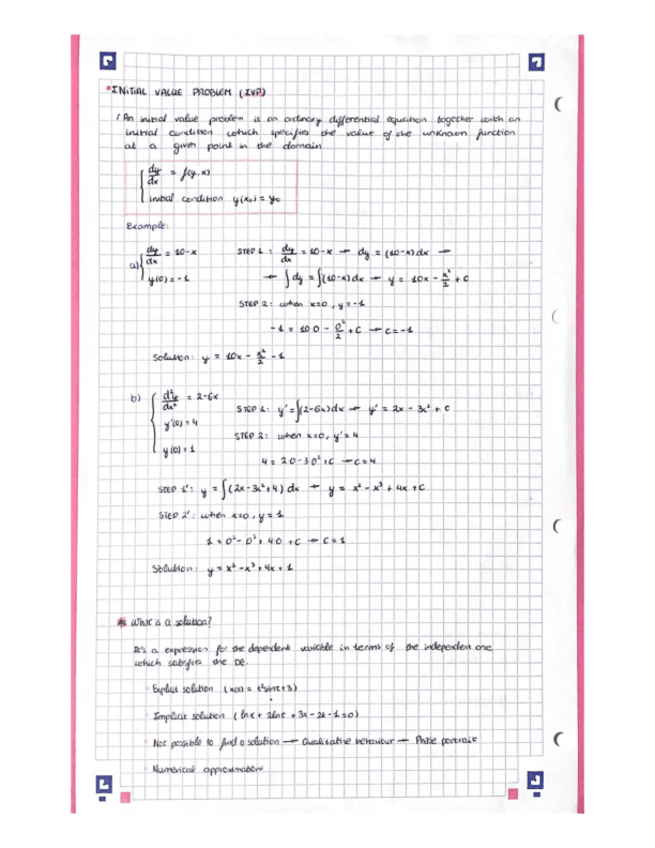 *INITIAL VALUE PROBLEM (IVP)
/ An initial value problem is an ordinary differential equation together with an
initial condition which specifies the value of the unknown function
at a given point in the domain
dy/dx = f(y,x)
initial condition y(x₀) = y₀
Example:
a) dy/dx = 10-x
y(0) = -1
STEP 1: dy/dx = 10-x → dy = (10-x)dx →
→ ∫dy = ∫(10-x)dx → y = 10x - x²/2 + C
STEP 2: when x=0, y=-1
-1 = 10·0 - 0²/2 + C → C=-1
Solution: y = 10x - x²/2 - 1
b) d²y/dx² = 2-6x
y'(0) = 4
y(0) = 1
STEP 1: y' = ∫(2-6x)dx → y' = 2x - 3x² + C
STEP 2: when x=0, y'=4
4 = 2·0 - 3·0² + C → C=4
STEP 1': y = ∫(2x-3x²+4)dx → y = x² - x³ + 4x + C
STEP 2': when x=0, y=1
1 = 0² - 0³ + 4·0 + C → C=1
Solution: y = x² - x³ + 4x + 1
* What is a solution?
It's a expression for the dependent variable in terms of the independent one
which satisfies the DE.
Explicit solution (x(t) = t²sint+3)
Implicit solution (lnx + 2lnt + 3x - 2t - 1 = 0)
Not possible to find a solution → Qualitative behaviour → Phase portrait
Numerical approximations